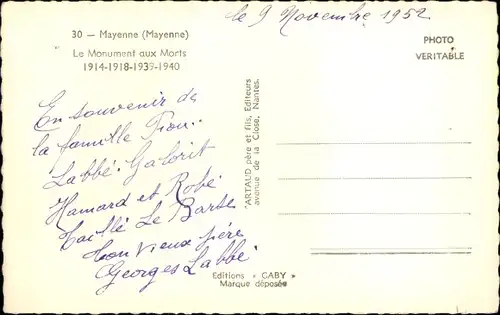 le 9 Novembre 1952
30 — Mayenne (Mayenne)
Le Monument aux Morts
1914-1918-1939-1940
PHOTO
VERITABLE
En souvenir de
la famille
Labbé. Galorit
Hamard et Robé
Le Barbé
ton vieux père
Georges Labbé
ARTAUD père et fils, Editeurs
avenue de la Close, Nantes.
Editions « GABY »
Marque déposée